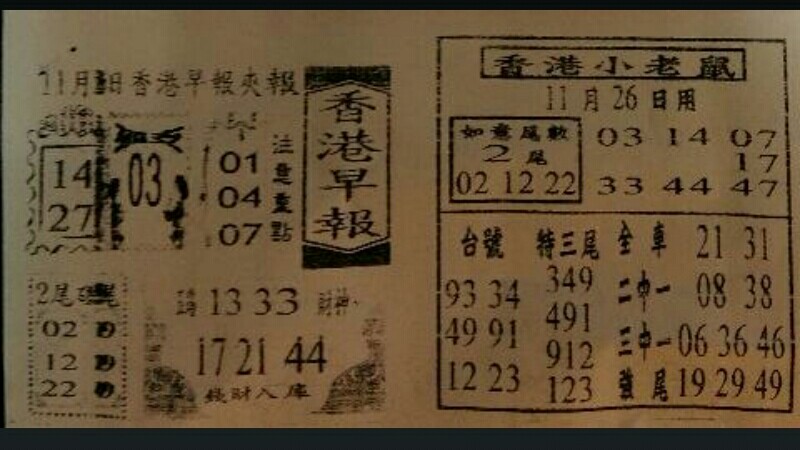 11月 日香港早報夾報
14
27
03
01
04
07
注意重點
香港早報
2尾
02
12
22
13 33
財神
17 21 44
錢財入庫
香港小老鼠
11月26日用
如意尾數
2尾
02 12 22
03 14 07
17
33 44 47
台號 特三尾 全車 21 31
93 34 349 二中一 08 38
49 91 491 三中一 06 36 46
12 23 912 強尾 19 29 49
123